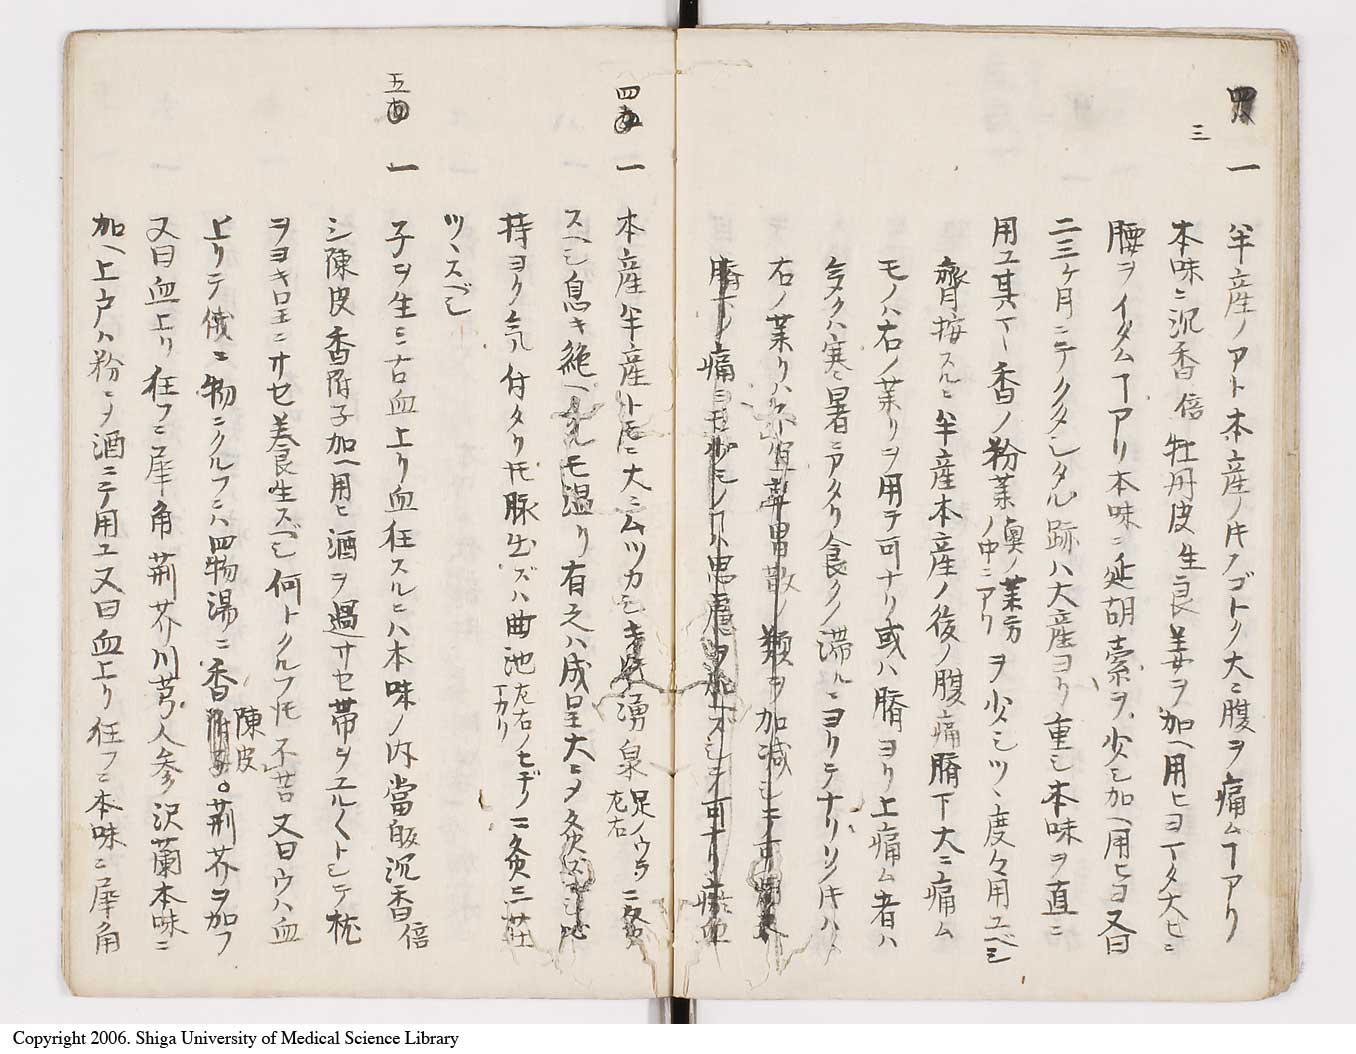 三
一
半産ノアト本産ノ𪜈ノゴトク大ニ腹ヲ痛ムヿアリ
本味ニ沉香倍牡丹皮生良姜ヲ加ヘ用ヒヨイタ大ヒニ
腰ヲイタムヿアリ本味ニ延胡索ヲ少シ加ヘ用ヒヨ又曰
二三ケ月ニテクタシタル跡ハ大産ヨリ重シ本味ヲ直ニ
用ユ其下香ノ粉薬奥ノ薬方ノ中ニアリヲ少シツヽ度々用ユベシ
臍按スルニ半産本産ノ後ノ腹痛臍下大ニ痛ム
モノハ右ノ薬リヲ用テ可ナリ或ハ臍ヨリ上痛ム者ハ
多クハ寒暑ニアタリ食クノ滞ルニヨリテナリソノ𪜈ハ
右ノ薬リハ不宜 胃散ノ類ヲ加減シテ可用
臍下ノ痛 思慮ヲ加 シテ可ナリ
四
一
本産半産トモニ大ニムツカシキ 湧泉足ノウラ左右ニ灸
スヘシ息キ絶ヘタルモ温リ有之ハ成呈大ニメ灸スベシ
持ヨク氣付タリ𪜈脉出ズハ曲池左右ノヒヂノ下カリニ灸三荘
ツヽスベシ
五
一
子ヲ生ミ古血上リ血狂スルニハ本味ノ内當皈沉香倍
シ陳皮香附子加ヘ用ヒ酒ヲ過サセ帯ヲユル〱トシテ枕
ヲヨキ呈ニサセ養生スベシ何トクルフ𪜈不苦又曰ウハ血
上リテ俄ニ物ニクルフニハ四物湯ニ香附陳皮荊芥ヲ加フ
又曰血上リ狂フニ犀角荊芥川芎人参沢蘭本味ニ
加ヘ上戸ハ粉ニヲ酒ニテ用ユ又曰血上リ狂フニ本味ニ犀角
Copyright 2006. Shiga University of Medical Science Library